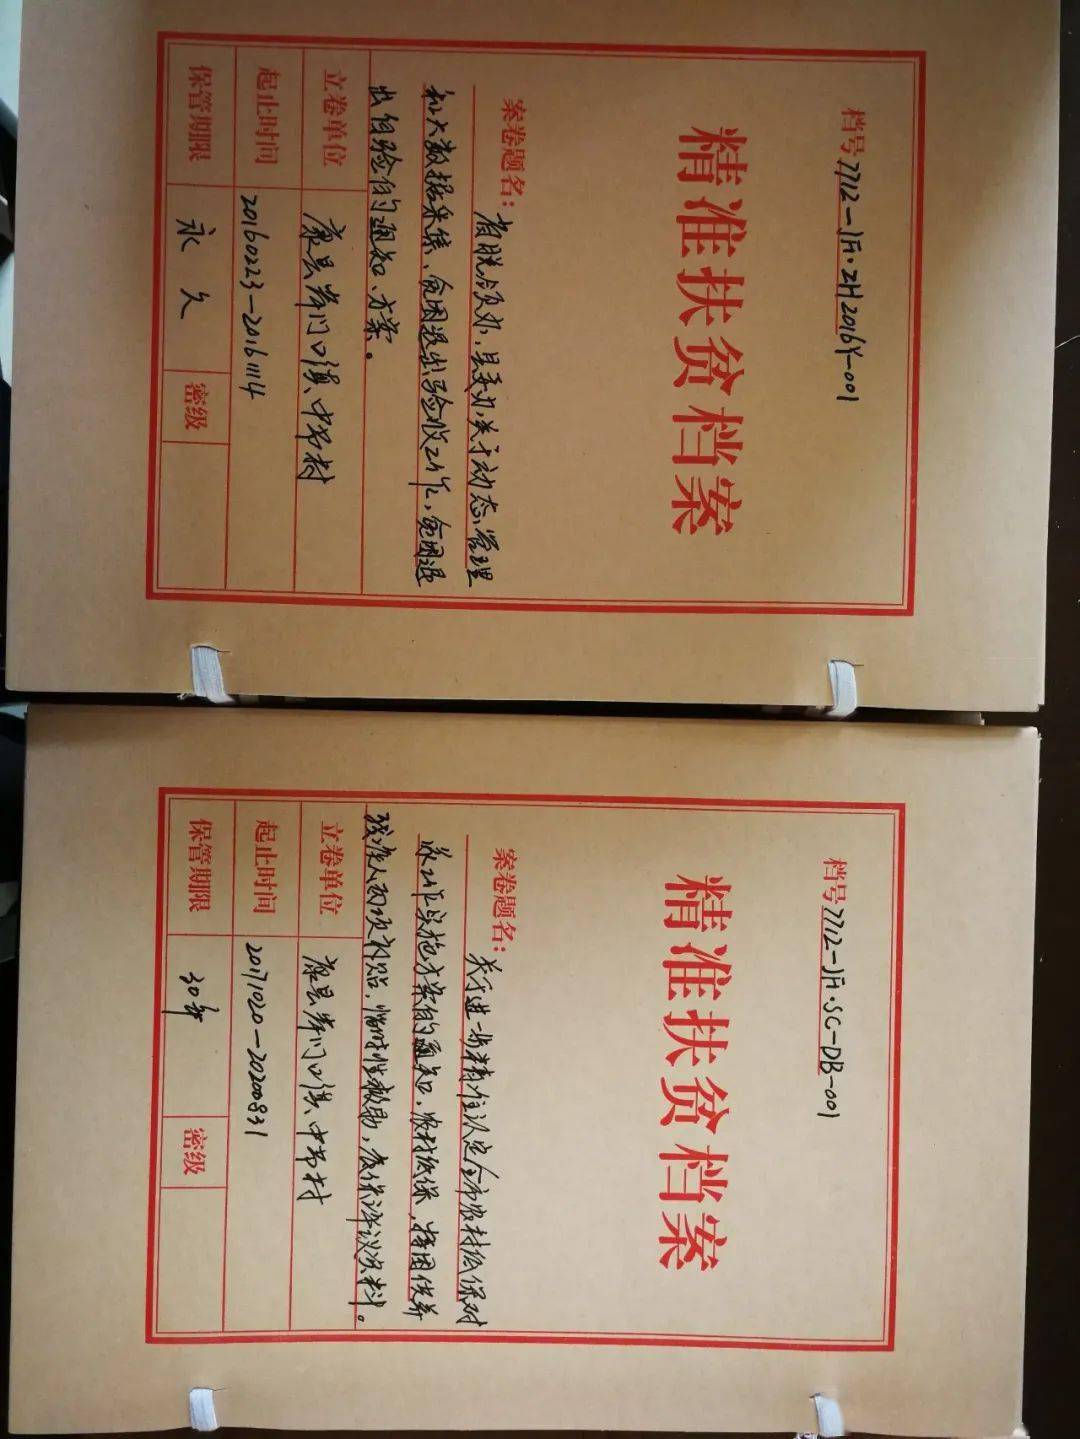 档号7712-JF·ZH2016Y-001
精准扶贫档案
案卷题名：省脱领办、县委办关于动态管理
和大数据采集、贫困退出验收工作，贫困退
出组验的通知、方案。
立卷单位 康县岸门口镇中节村
起止时间 20160223-20161114
保管期限 永久 密级
档号7712-JF·SC-DB-001
精准扶贫档案
案卷题名：关于进一步精准认定全市农村低保对
象工作实施方案的通知，农村低保，特困供养
残疾人两项补贴，临时性救助，低保评议资料。
立卷单位 康县岸门口镇中节村
起止时间 20171020-20200831
保管期限 30年 密级